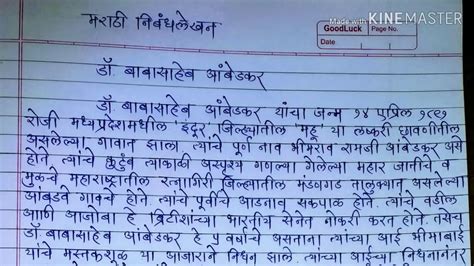 Made with KINEMASTER
मराठी निबंधलेखन
GoodLuck Page No.
Date
डॉ. बाबासाहेब आंबेडकर
डॉ. बाबासाहेब आंबेडकर यांचा जन्म १४ एप्रिल १८९१
रोजी मध्यप्रदेशमधील इंदूर जिल्ह्यातील 'महू' या लष्करी छावणीतील
असलेल्या गावात झाला. त्यांचे पूर्ण नाव भीमराव रामजी आंबेडकर असे
होते. त्यांचे कुटुंब त्याकाळी अस्पृश्य गणल्या गेलेल्या महार जातीचे व
मुळचे महाराष्ट्रातील रत्नागिरी जिल्ह्यातील मंडणगड तालुक्यात असलेल्या
आंबडवे गावचे होते. त्यांचे पूर्वीचे आडनाव सकपाळ होते. त्यांचे वडील
आणि आजोबा हे ब्रिटीशांच्या भारतीय सेनेत नोकरी करत होते. तसेच
डॉ बाबासाहेब आंबेडकर हे ५ वर्षाचे असताना त्यांच्या आई भीमाबाई
यांचे मस्तकशूळ या आजाराने निधन झाले. त्यांच्या आईच्या निधनानंतर